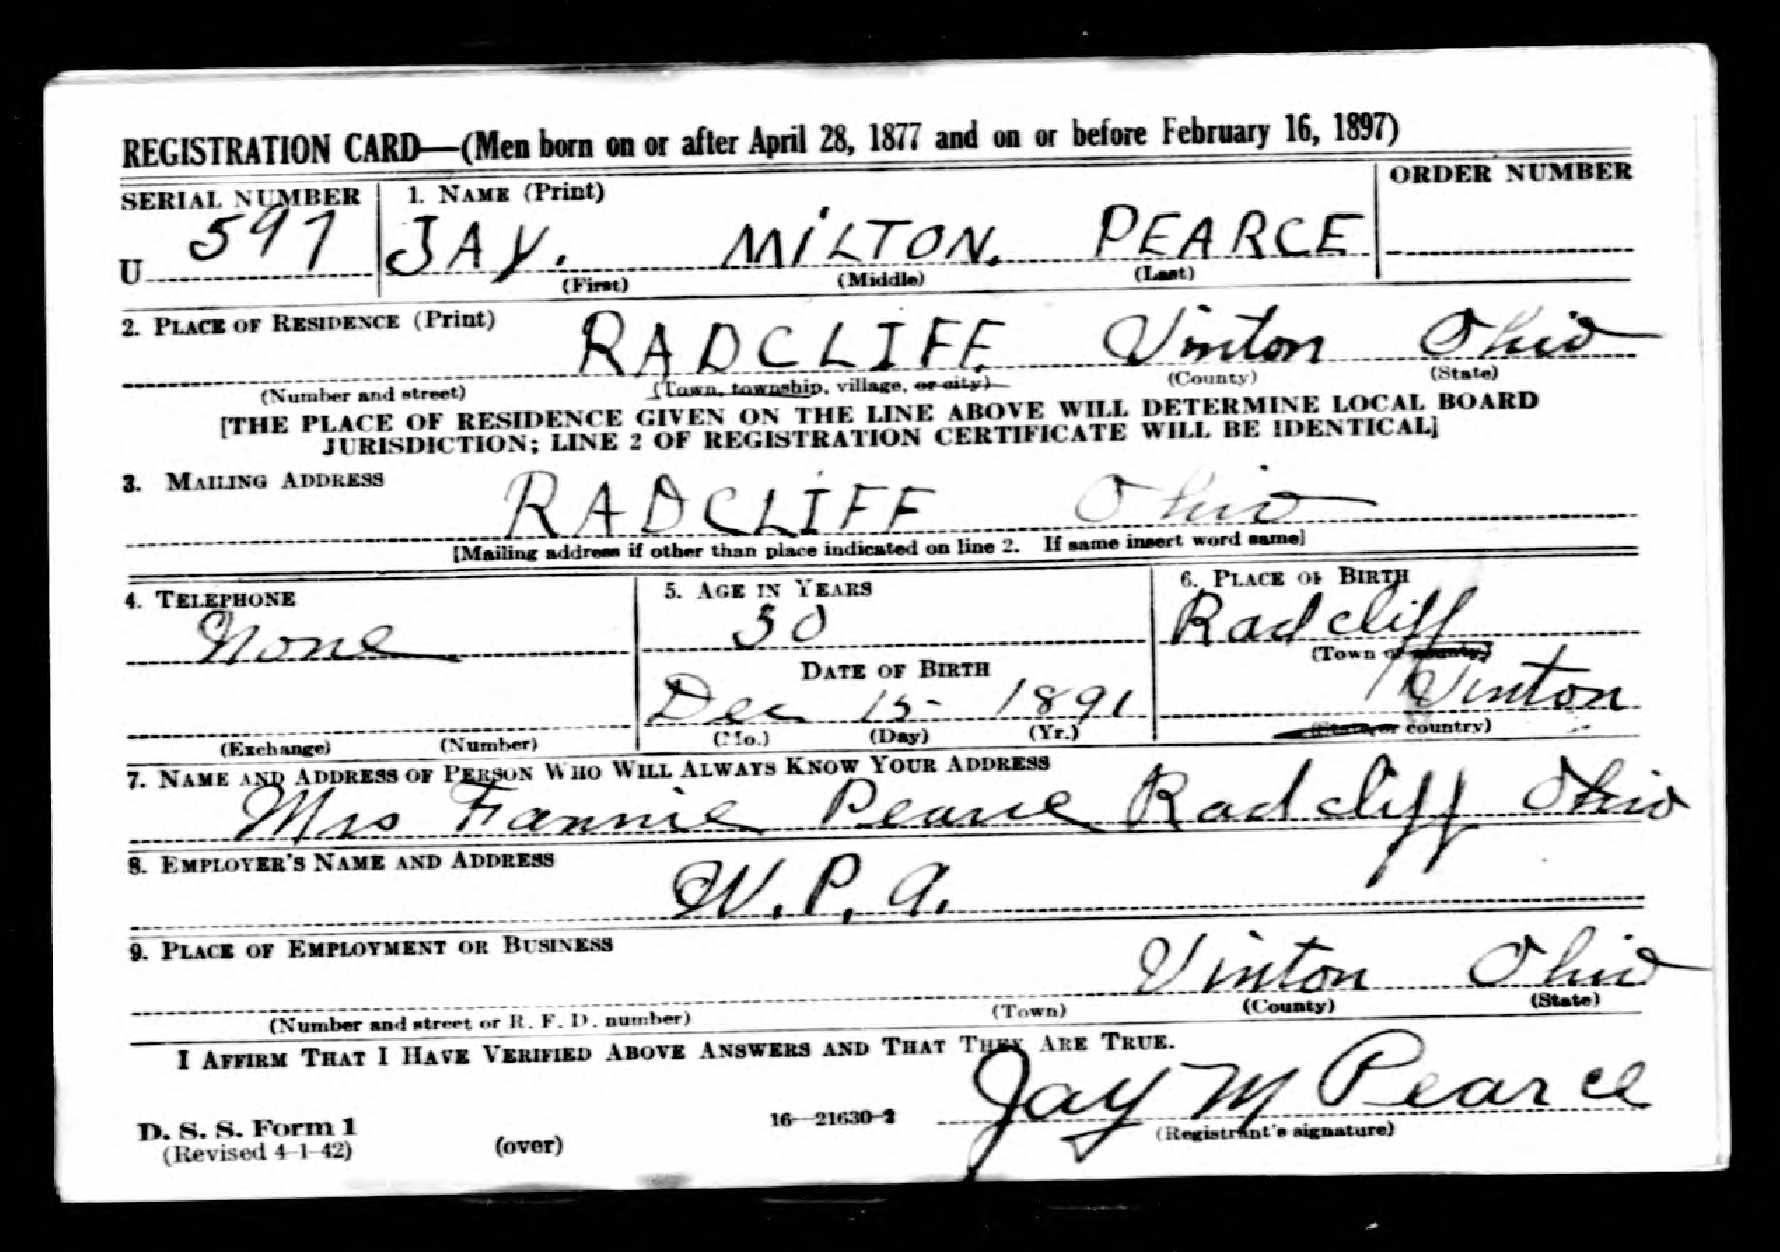 REGISTRATION CARD—(Men born on or after April 28, 1877 and on or before February 16, 1897)
SERIAL NUMBER 1. NAME (Print) ORDER NUMBER
U 597 JAY. MILTON. PEARCE
(First) (Middle) (Last)
2. PLACE OF RESIDENCE (Print)
RADCLIFF. Vinton Ohio
(Number and street) (Town, township, village, or city) (County) (State)
[THE PLACE OF RESIDENCE GIVEN ON THE LINE ABOVE WILL DETERMINE LOCAL BOARD
JURISDICTION; LINE 2 OF REGISTRATION CERTIFICATE WILL BE IDENTICAL]
3. MAILING ADDRESS
RADCLIFF Ohio
[Mailing address if other than place indicated on line 2. If same insert word same]
4. TELEPHONE 5. AGE IN YEARS 6. PLACE OF BIRTH
None 50 Radcliff
(Town or county)
DATE OF BIRTH
Dec 15- 1891 Vinton
(Exchange) (Number) (Mo.) (Day) (Yr.) (State or country)
7. NAME AND ADDRESS OF PERSON WHO WILL ALWAYS KNOW YOUR ADDRESS
Mrs Fannie Pearce Radcliff Ohio
8. EMPLOYER'S NAME AND ADDRESS
W.P.A.
9. PLACE OF EMPLOYMENT OR BUSINESS
Vinton Ohio
(Number and street or R. F. D. number) (Town) (County) (State)
I AFFIRM THAT I HAVE VERIFIED ABOVE ANSWERS AND THAT THEY ARE TRUE.
Jay M Pearce
D. S. S. Form 1 16—21630-2 (Registrant's signature)
(Revised 4-1-42) (over)